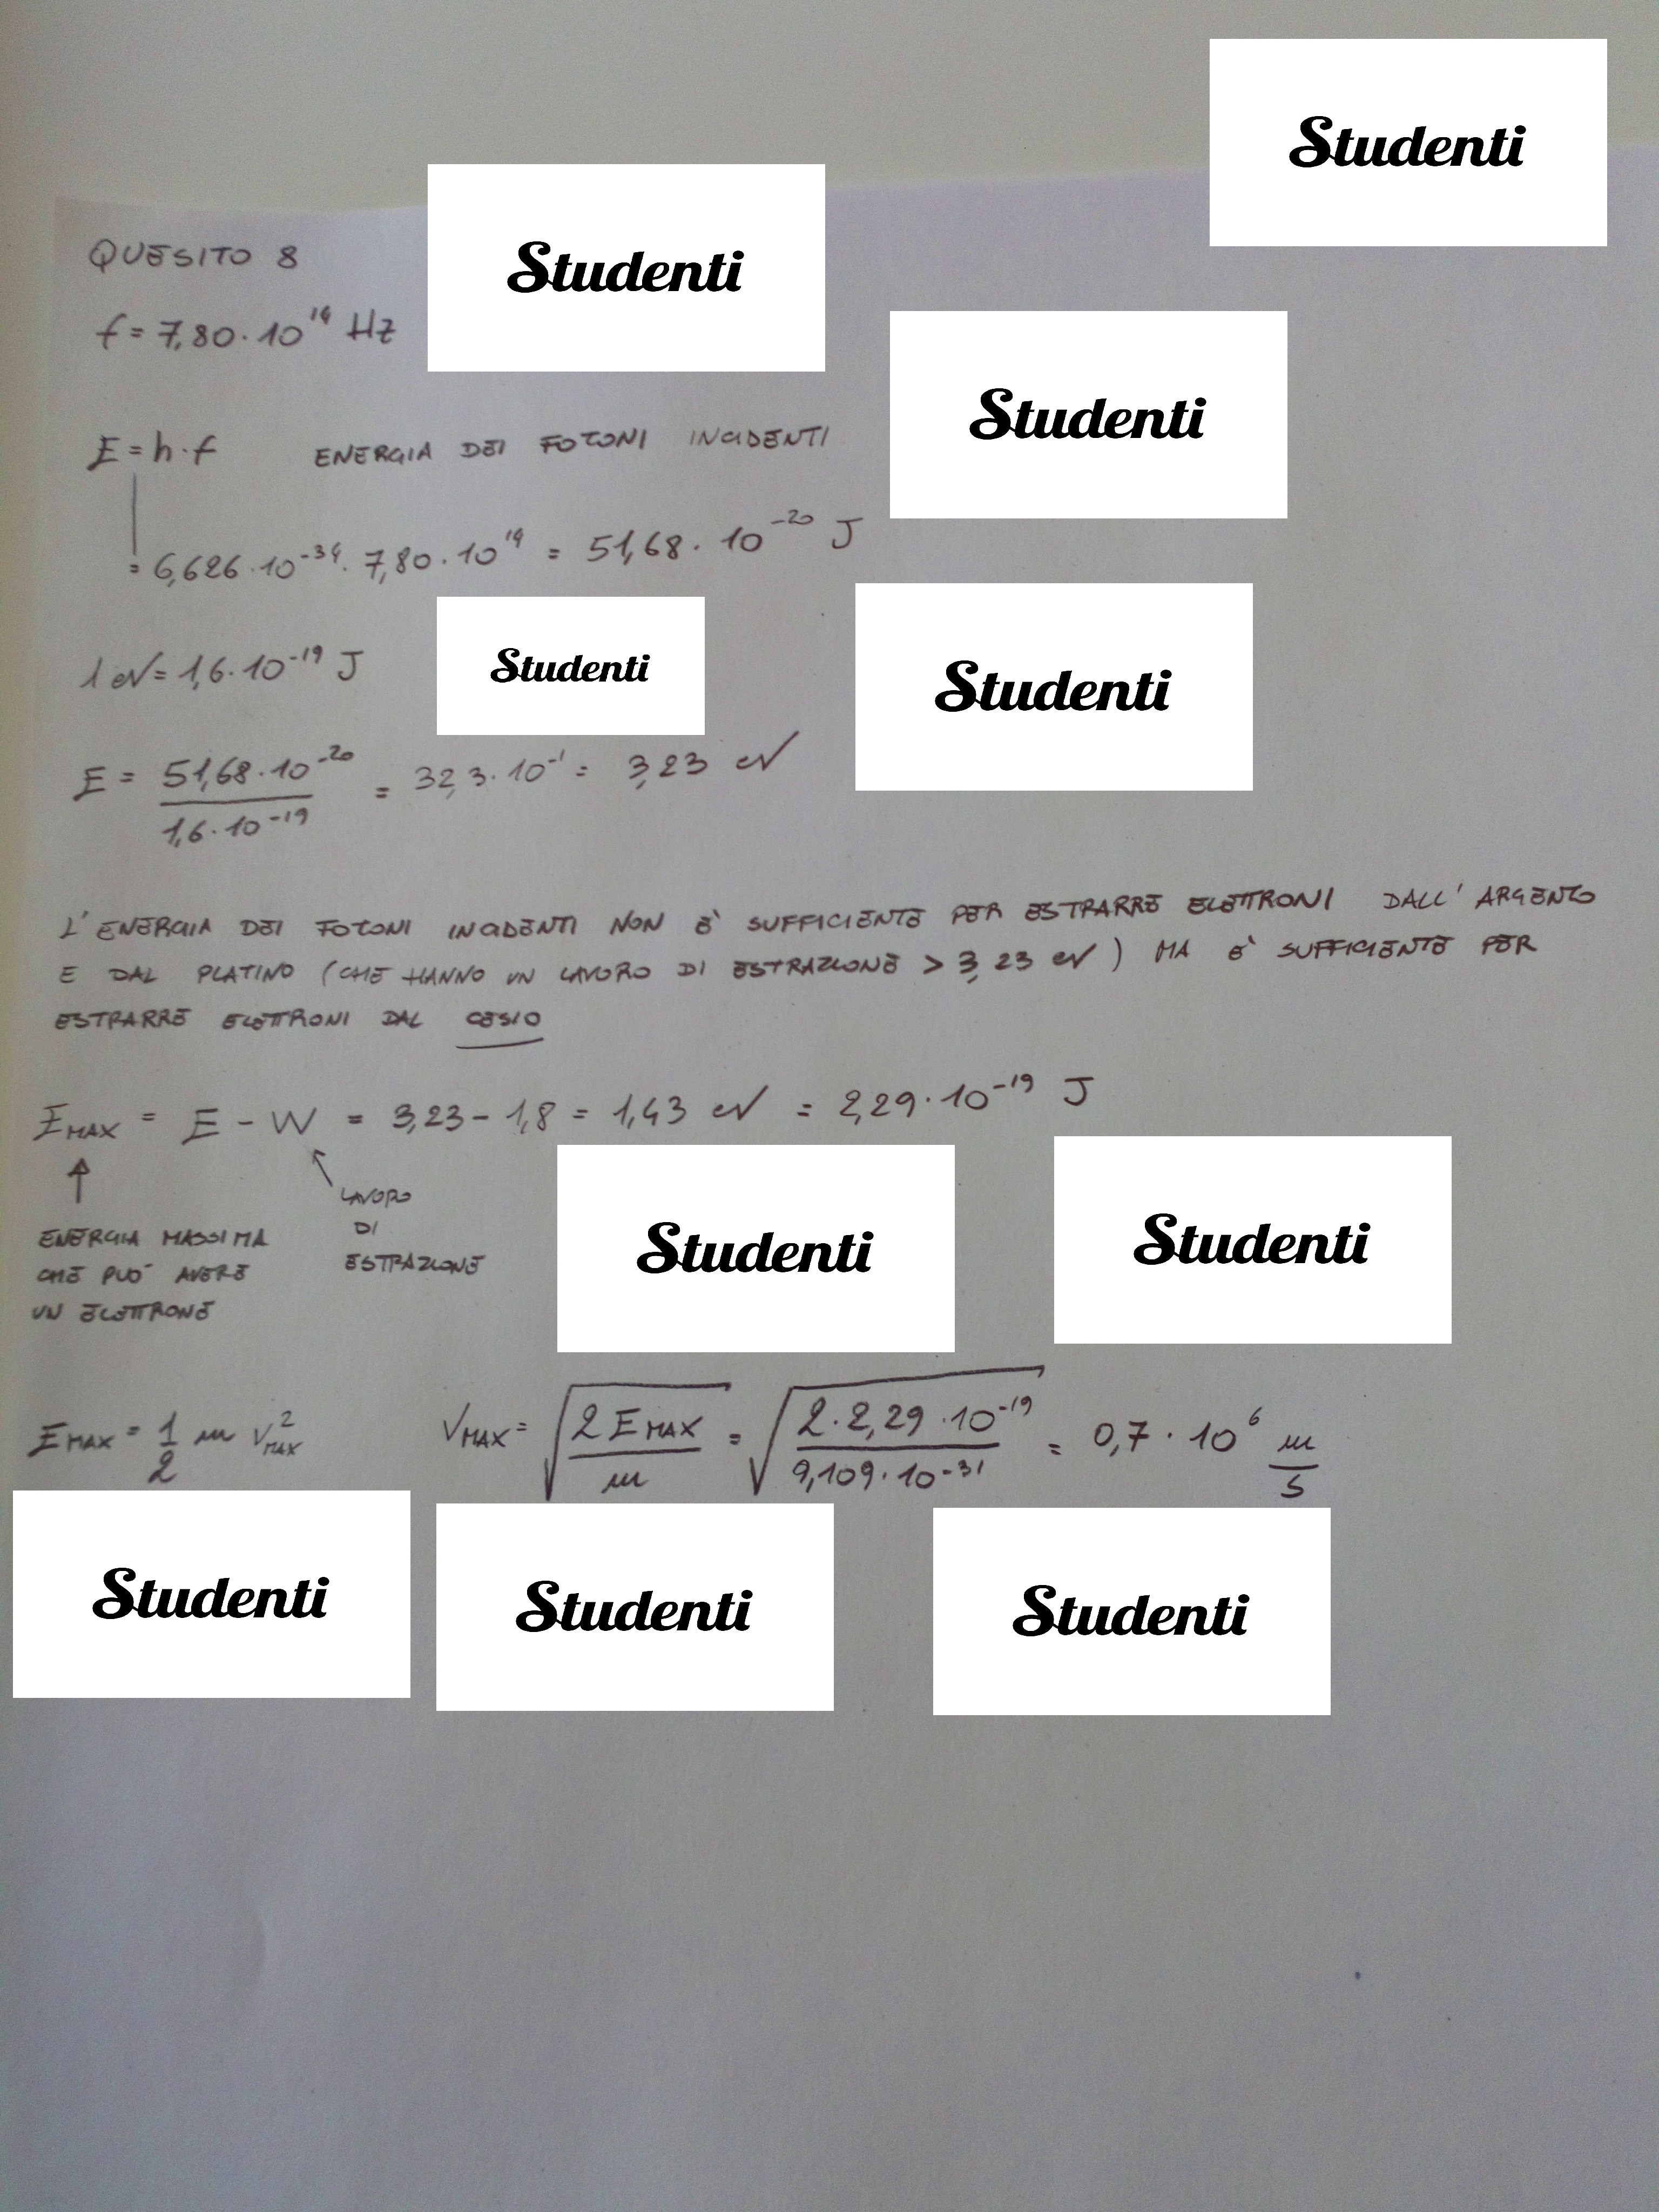 Studenti
Studenti
QUESITO 8
f = 7,80 · 10¹⁴ Hz
Studenti
E = h · f ENERGIA DEI FOTONI INCIDENTI
= 6,626 · 10⁻³⁴ · 7,80 · 10¹⁴ = 51,68 · 10⁻²⁰ J
1 eV = 1,6 · 10⁻¹⁹ J
Studenti
Studenti
E = 51,68 · 10⁻²⁰ / 1,6 · 10⁻¹⁹ = 32,3 · 10⁻¹ = 3,23 eV
L' ENERGIA DEI FOTONI INCIDENTI NON È SUFFICIENTE PER ESTRARRE ELETTRONI DALL' ARGENTO
E DAL PLATINO (CHE HANNO UN LAVORO DI ESTRAZIONE > 3,23 eV) MA È SUFFICIENTE PER
ESTRARRE ELETTRONI DAL CESIO
E MAX = E - W = 3,23 - 1,8 = 1,43 eV = 2,29 · 10⁻¹⁹ J
↑
ENERGIA MASSIMA
CHE PUO' AVERE
UN ELETTRONE
LAVORO
DI
ESTRAZIONE
Studenti
Studenti
E MAX = 1/2 m v²MAX VMAX = √(2 E MAX / m) = √(2 · 2,29 · 10⁻¹⁹ / 9,109 · 10⁻³¹) = 0,7 · 10⁶ m/s
Studenti
Studenti
Studenti